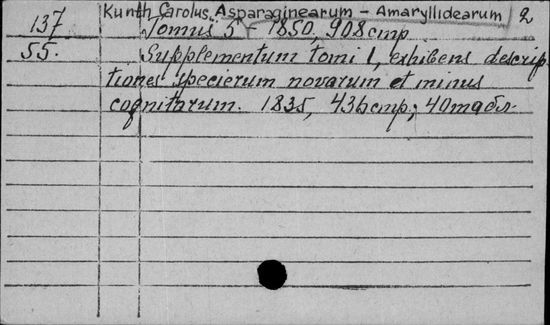 Kunth Carolus. Asparaginearum - Amaryllidearum 2
137 Tomus 5 - 1850, 908 стр.
55. Supplementum tomi 1, exhibens descrip-
tiones specierum novarum et minus
cognitarum. 1835, 436 стр; 40 табл.